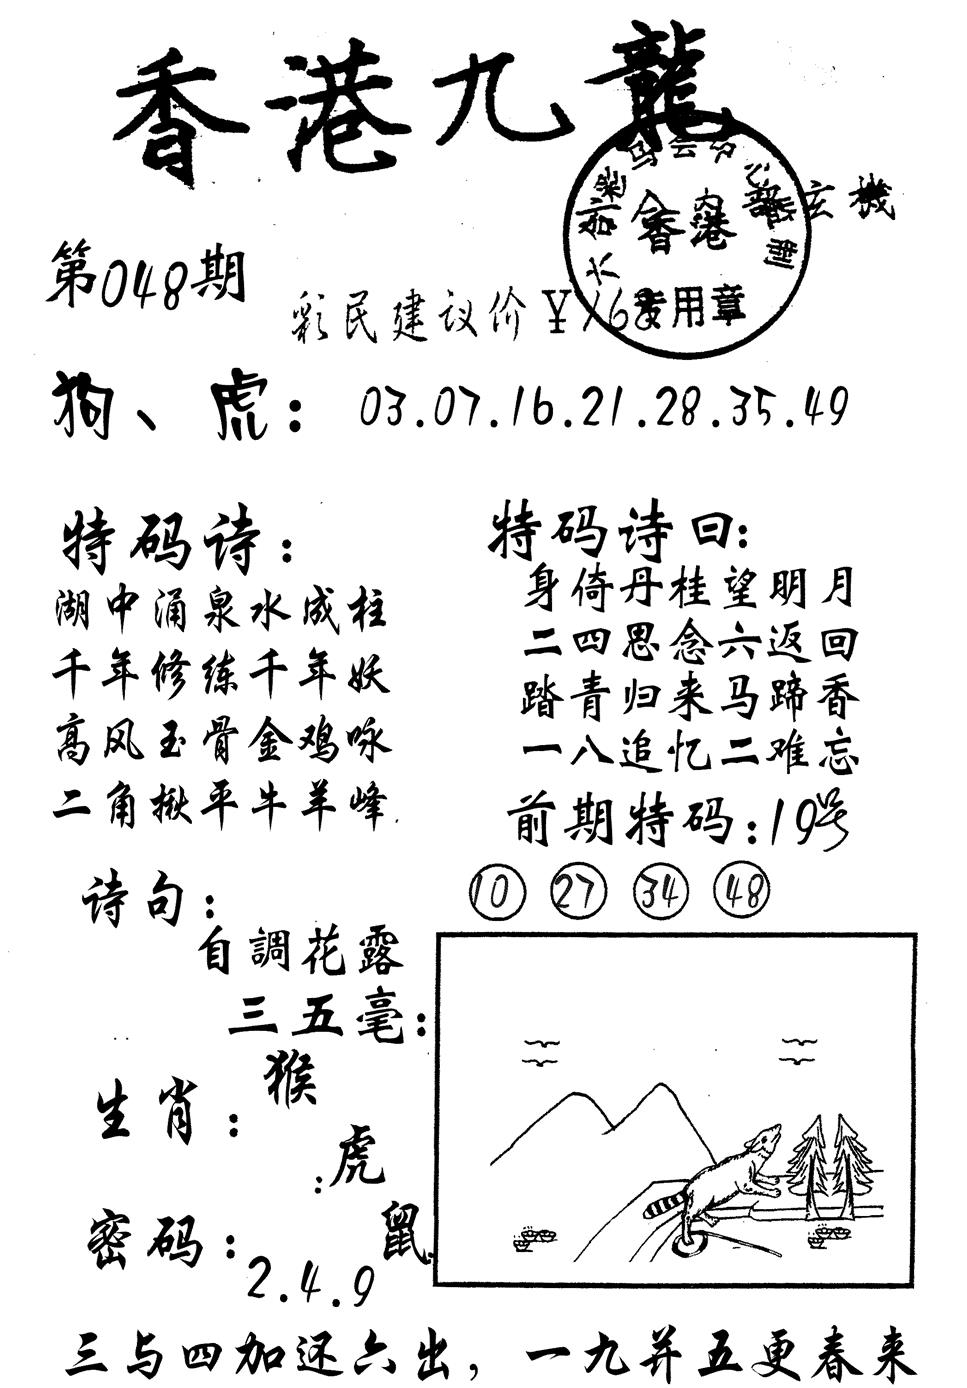 香港九龍
玄機
香港
专用章
第048期
彩民建议价¥168
狗、虎：03.07.16.21.28.35.49
特码诗：
湖中涌泉水成柱
千年修练千年妖
高风玉骨金鸡咏
二角揪平牛羊峰
特码诗曰：
身倚丹桂望明月
二四思念六返回
踏青归来马蹄香
一八追忆二难忘
前期特码：19号
10 27 34 48
诗句：
自調花露
三五毫：
生肖：猴
虎
鼠
密码：2.4.9
三与四加还六出，一九并五更春来